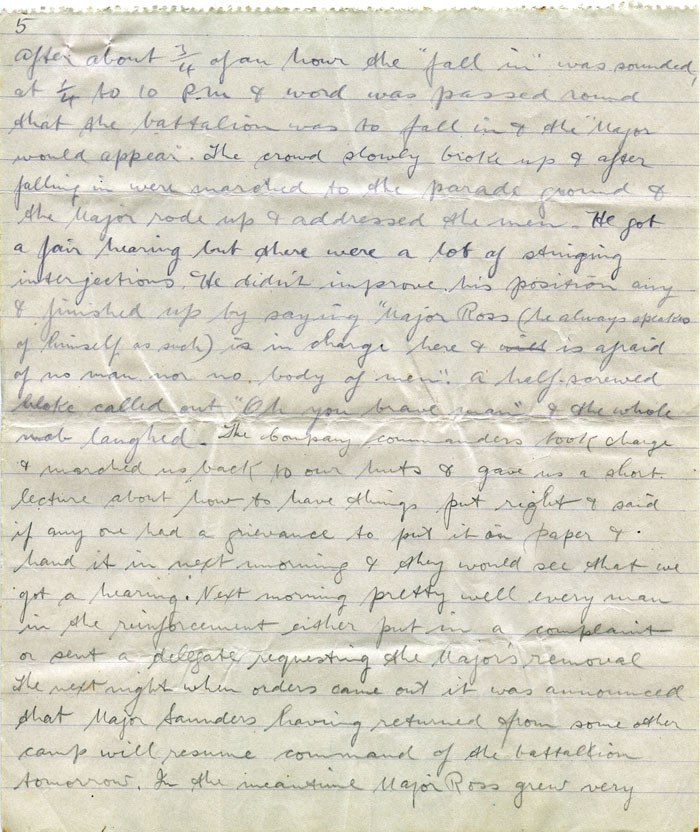 5
After about 3/4 of an hour the "fall in" was sounded,
at 1/4 to 10 P.m & word was passed round
that the battalion was to fall in & the "Major
would appear". The crowd slowly broke up & after
falling in were marched to the parade ground &
the Major rode up & addressed the men. He got
a fair hearing but there were a lot of stinging
interjections. He didn't improve his position any
& finished up by saying "Major Ross (he always speaks
of himself as such) is in charge here & will is afraid
of no man nor no body of men". A half-screwed
bloke called out "Oh you brave man" & the whole
mob laughed. The Company commanders took charge
& marched us back to our huts & gave us a short
lecture about how to have things put right & said
if any one had a grievance to put it on paper &
hand it in next morning & they would see that we
got a hearing. Next morning pretty well every man
in the reinforcement either put in a complaint
or sent a delegate requesting the Major's removal
The next night when orders came out it was announced
that Major Saunders having returned from some other
camp will resume command of the battalion
tomorrow. In the meantime Major Ross grew very